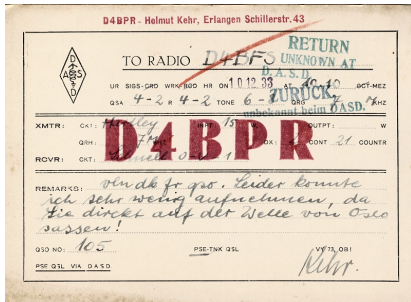 D4BPR - Helmut Kehr, Erlangen Schillerstr. 43
DASD
TO RADIO D4BFS
RETURN
UNKNOWN AT
D.A.S.D.
ZURÜCK,
unbekannt beim DASD.
UR SIGS-CRD WRK BCD HR ON 10.12.33 AT 10-10 OCT-MEZ
QSA 4-2 R 4-2 TONE 6- QRG 7 KHZ
XMTR: CKT: Hartley INPT 15 W OUTPT: W
D4BPR
QRH DX: CONT 21 COUNTR
RCVR: CKT: 0-V-1
REMARKS: vln dk fr qso. Leider konnte
ich sehr wenig aufnehmen, da
Sie direkt auf der Welle von Oslo
sassen!
QSO NO: 105 PSE-TNK QSL VY 73, OB!
PSE QSL VIA DASD Kehr.